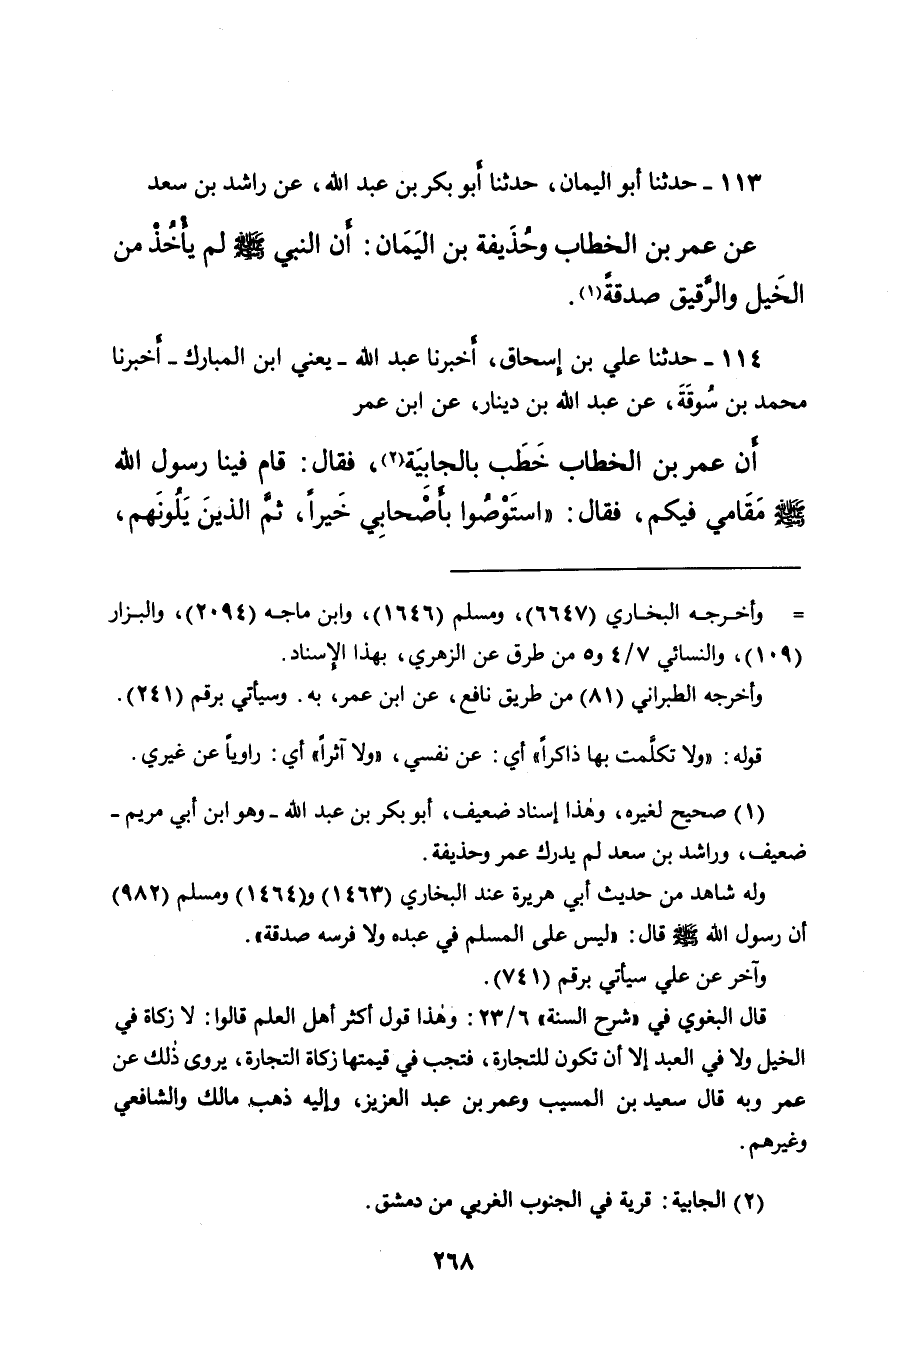 ١١٣ ـ حدثنا أبو اليمان، حدثنا أبو بكر بن عبد الله، عن راشد بن سعد
عن عمر بن الخطاب وحُذَيفة بن اليَمَان: أَن النبي ﷺ لم يأْخُذْ من
الخَيل والرَّقيق صدقةً(١).
١١٤ ـ حدثنا علي بن إسحاق، أَخبرنا عبد الله ـ يعني ابن المبارك ـ أَخبرنا
محمد بن سُوقَةَ، عن عبد الله بن دينار، عن ابن عمر
أَن عمر بن الخطاب خَطَب بالجابيَة(٢)، فقال: قام فينا رسول الله
ﷺ مَقَامي فيكم، فقال: «استَوْصُوا بأَصْحابِي خَيراً، ثمَّ الذينَ يَلُونَهم،
= وأخرجه البخاري (٦٦٤٧)، ومسلم (١٦٤٦)، وابن ماجه (٢٠٩٤)، والبزار
(١٠٩)، والنسائي ٤/٧ و٥ من طرق عن الزهري، بهذا الإسناد.
وأخرجه الطبراني (٨١) من طريق نافع، عن ابن عمر، به. وسيأتي برقم (٢٤١).
قوله: «ولا تكلَّمت بها ذاكراً» أي: عن نفسي، «ولا آثراً» أي: راوياً عن غيري.
(١) صحيح لغيره، وهٰذا إسناد ضعيف، أبو بكر بن عبد الله ـ وهو ابن أبي مريم ـ
ضعيف، وراشد بن سعد لم يدرك عمر وحذيفة.
وله شاهد من حديث أبي هريرة عند البخاري (١٤٦٣) و(١٤٦٤) ومسلم (٩٨٢)
أن رسول الله ﷺ قال: «ليس على المسلم في عبده ولا فرسه صدقة».
وآخر عن علي سيأتي برقم (٧٤١).
قال البغوي في «شرح السنة» ٢٣/٦: وهٰذا قول أكثر أهل العلم قالوا: لا زكاة في
الخيل ولا في العبد إلا أن تكون للتجارة، فتجب في قيمتها زكاة التجارة، يروى ذٰلك عن
عمر وبه قال سعيد بن المسيب وعمر بن عبد العزيز، وإليه ذهب مالك والشافعي
وغيرهم.
(٢) الجابية: قرية في الجنوب الغربي من دمشق.
٢٦٨